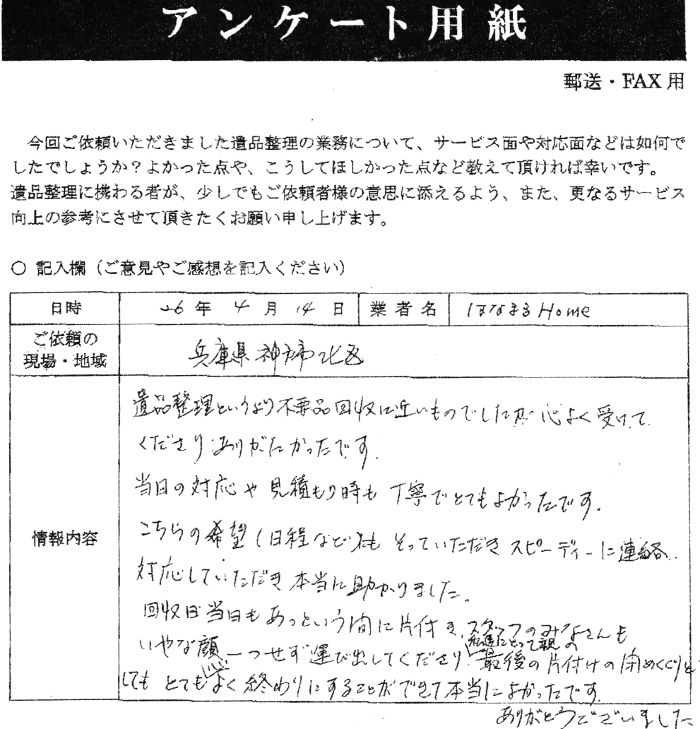 アンケート用紙
郵送・FAX 用
今回ご依頼いただきました遺品整理の業務について、サービス面や対応面などは如何で
したでしょうか？よかった点や、こうしてほしかった点など教えて頂ければ幸いです。
遺品整理に携わる者が、少しでもご依頼者様の意思に添えるよう、また、更なるサービス
向上の参考にさせて頂きたくお願い申し上げます。
○ 記入欄（ご意見やご感想を記入ください）
日時 26 年 4 月 14 日 業者名 はなまるHome
ご依頼の
現場・地域
兵庫県神戸市北区
情報内容
遺品整理というより不要品回収に近いものでしたが心よく受けて
くださりありがたかったです。
当日の対応や見積もり時も丁寧でとてもよかったです。
こちらの希望(日程など)にもそっていただきスピーディーに連絡、
対応していただき本当に助かりました。
回収日当日もあっという間に片付き、スタッフのみなさんも
いやな顔一つせず運び出してくださり、私達にとって親の最後の片付けの闭めくくりと
してもとても心よく終わりにすることができて本当によかったです。
ありがとうございました